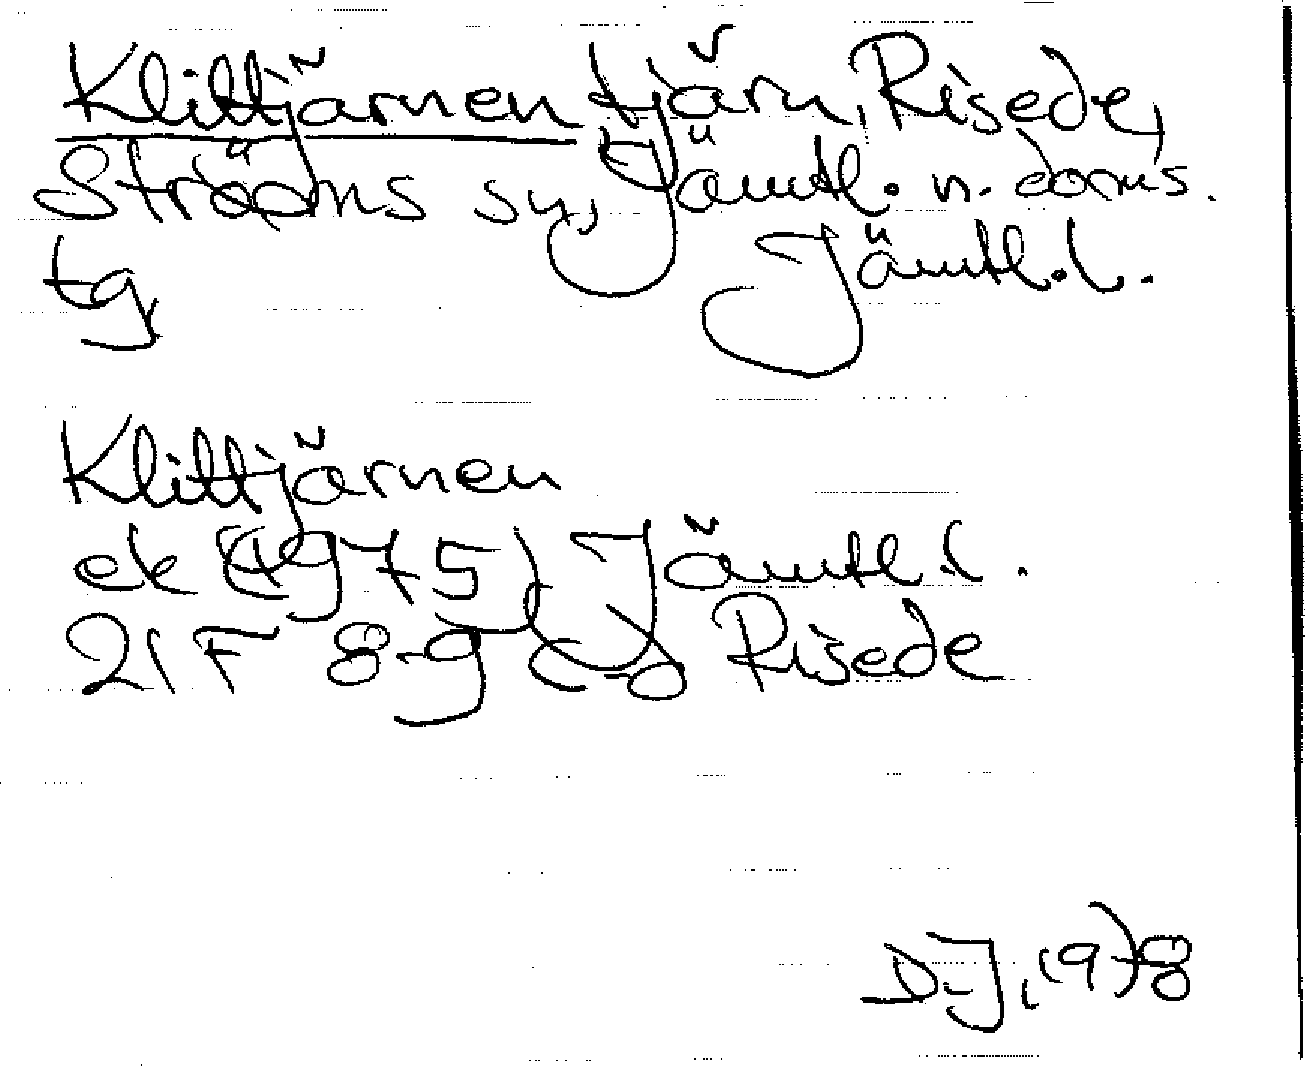 Klittjärnen tjärn, Risede,
Ströms sn, Jämtl. n. doms.
tg Jämtl. l.
Klittjärnen
ek (1975) Jämtl. l.
21 F 8-9 c-d Risede
D-J, 1978